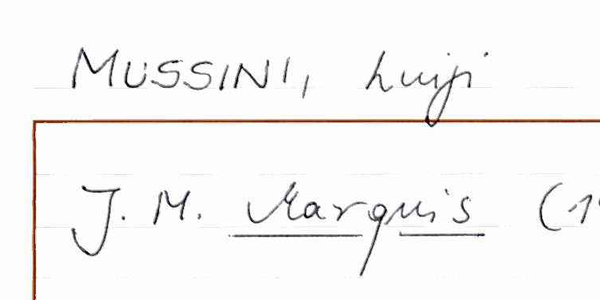 MUSSINI, Luigi
J. M. Marquis (1